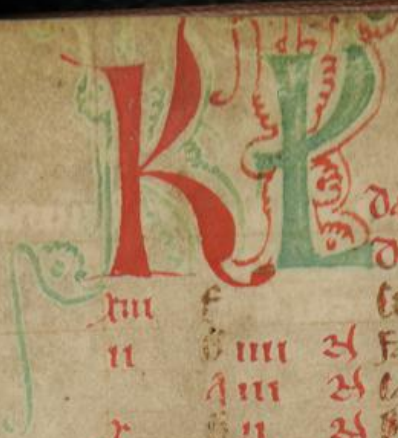 KL
xiii F
ii G iiii N
A iii N
x B ii N